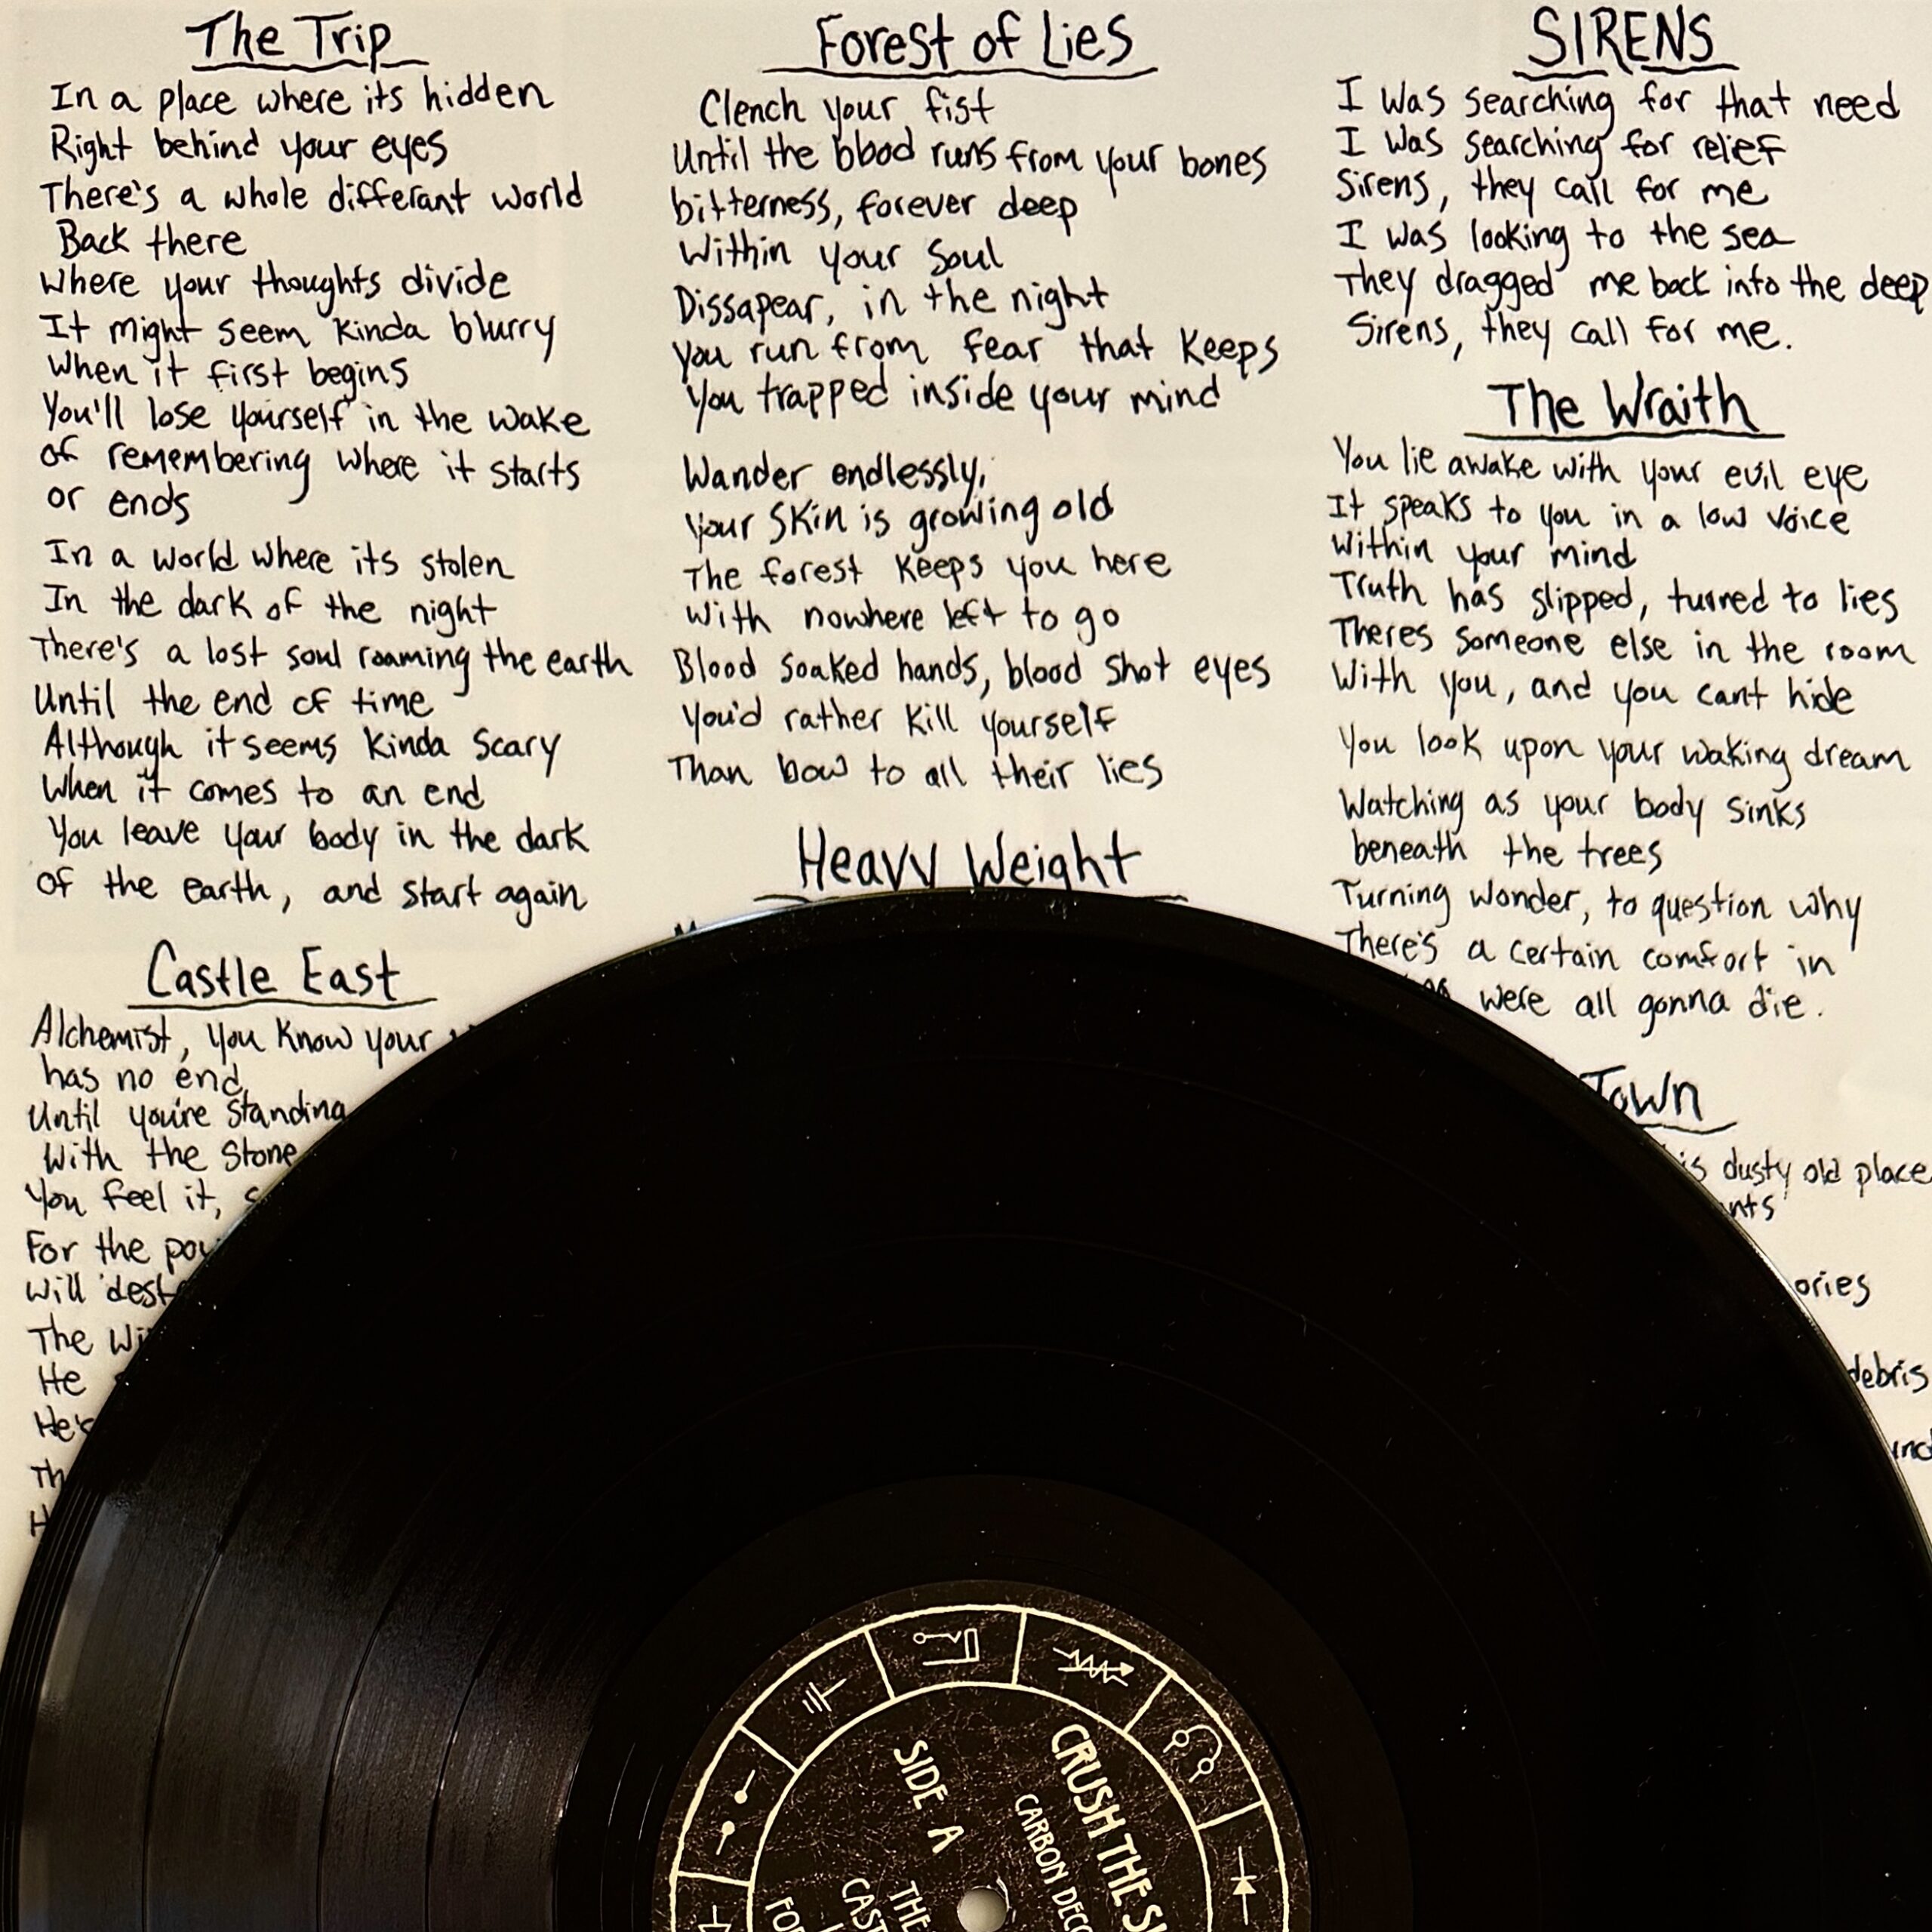 The Trip
In a place where its hidden
Right behind your eyes
There's a whole differant world
Back there
Where your thoughts divide
It might seem kinda blurry
When it first begins
You'll lose yourself in the wake
of remembering where it starts
or ends
In a world where its stolen
In the dark of the night
There's a lost soul roaming the earth
Until the end of time
Although it seems kinda scary
When it comes to an end
You leave your body in the dark
Of the earth, and start again
Castle East
Alchemist, you know your
has no end
Until you're standing
With the stone
You feel it,
For the
Will
The
He
He's
Forest of Lies
Clench your fist
Until the blood runs from your bones
bitterness, forever deep
Within your soul
Dissapear, in the night
You run from fear that keeps
You trapped inside your mind
Wander endlessly,
Your skin is growing old
The forest keeps you here
With nowhere left to go
Blood soaked hands, blood shot eyes
You'd rather kill yourself
Than bow to all their lies
Heavy Weight
SIRENS
I was searching for that need
I was searching for relief
Sirens, they call for me
I was looking to the sea
They dragged me back into the deep
Sirens, they call for me.
The Wraith
You lie awake with your evil eye
It speaks to you in a low voice
Within your mind
Truth has slipped, turned to lies
Theres someone else in the room
With you, and you cant hide
You look upon your waking dream
Watching as your body sinks
beneath the trees
Turning wonder, to question why
There's a certain comfort in
were all gonna die.
Town
dusty old place
debris
SIDE A
CRUSH THE
CARBON
THE